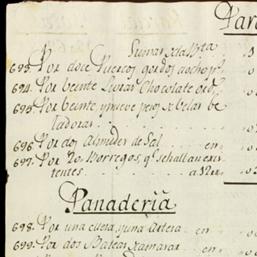 Par
Suma de la Bta
693. Por doce Puercos gordos a ocho ps
694. Por beinte Livras Chocolate a
695. Por beinte y nueve pesos de belas be
ladoras
696. Por dos Almudes de Sal en
697. Por Dos Borregos, qe se hallan exis
tentes a 12 rr
Panaderia
698. Por una cueva, y una Artesa en
699. Por dos Bateas, xamaras en